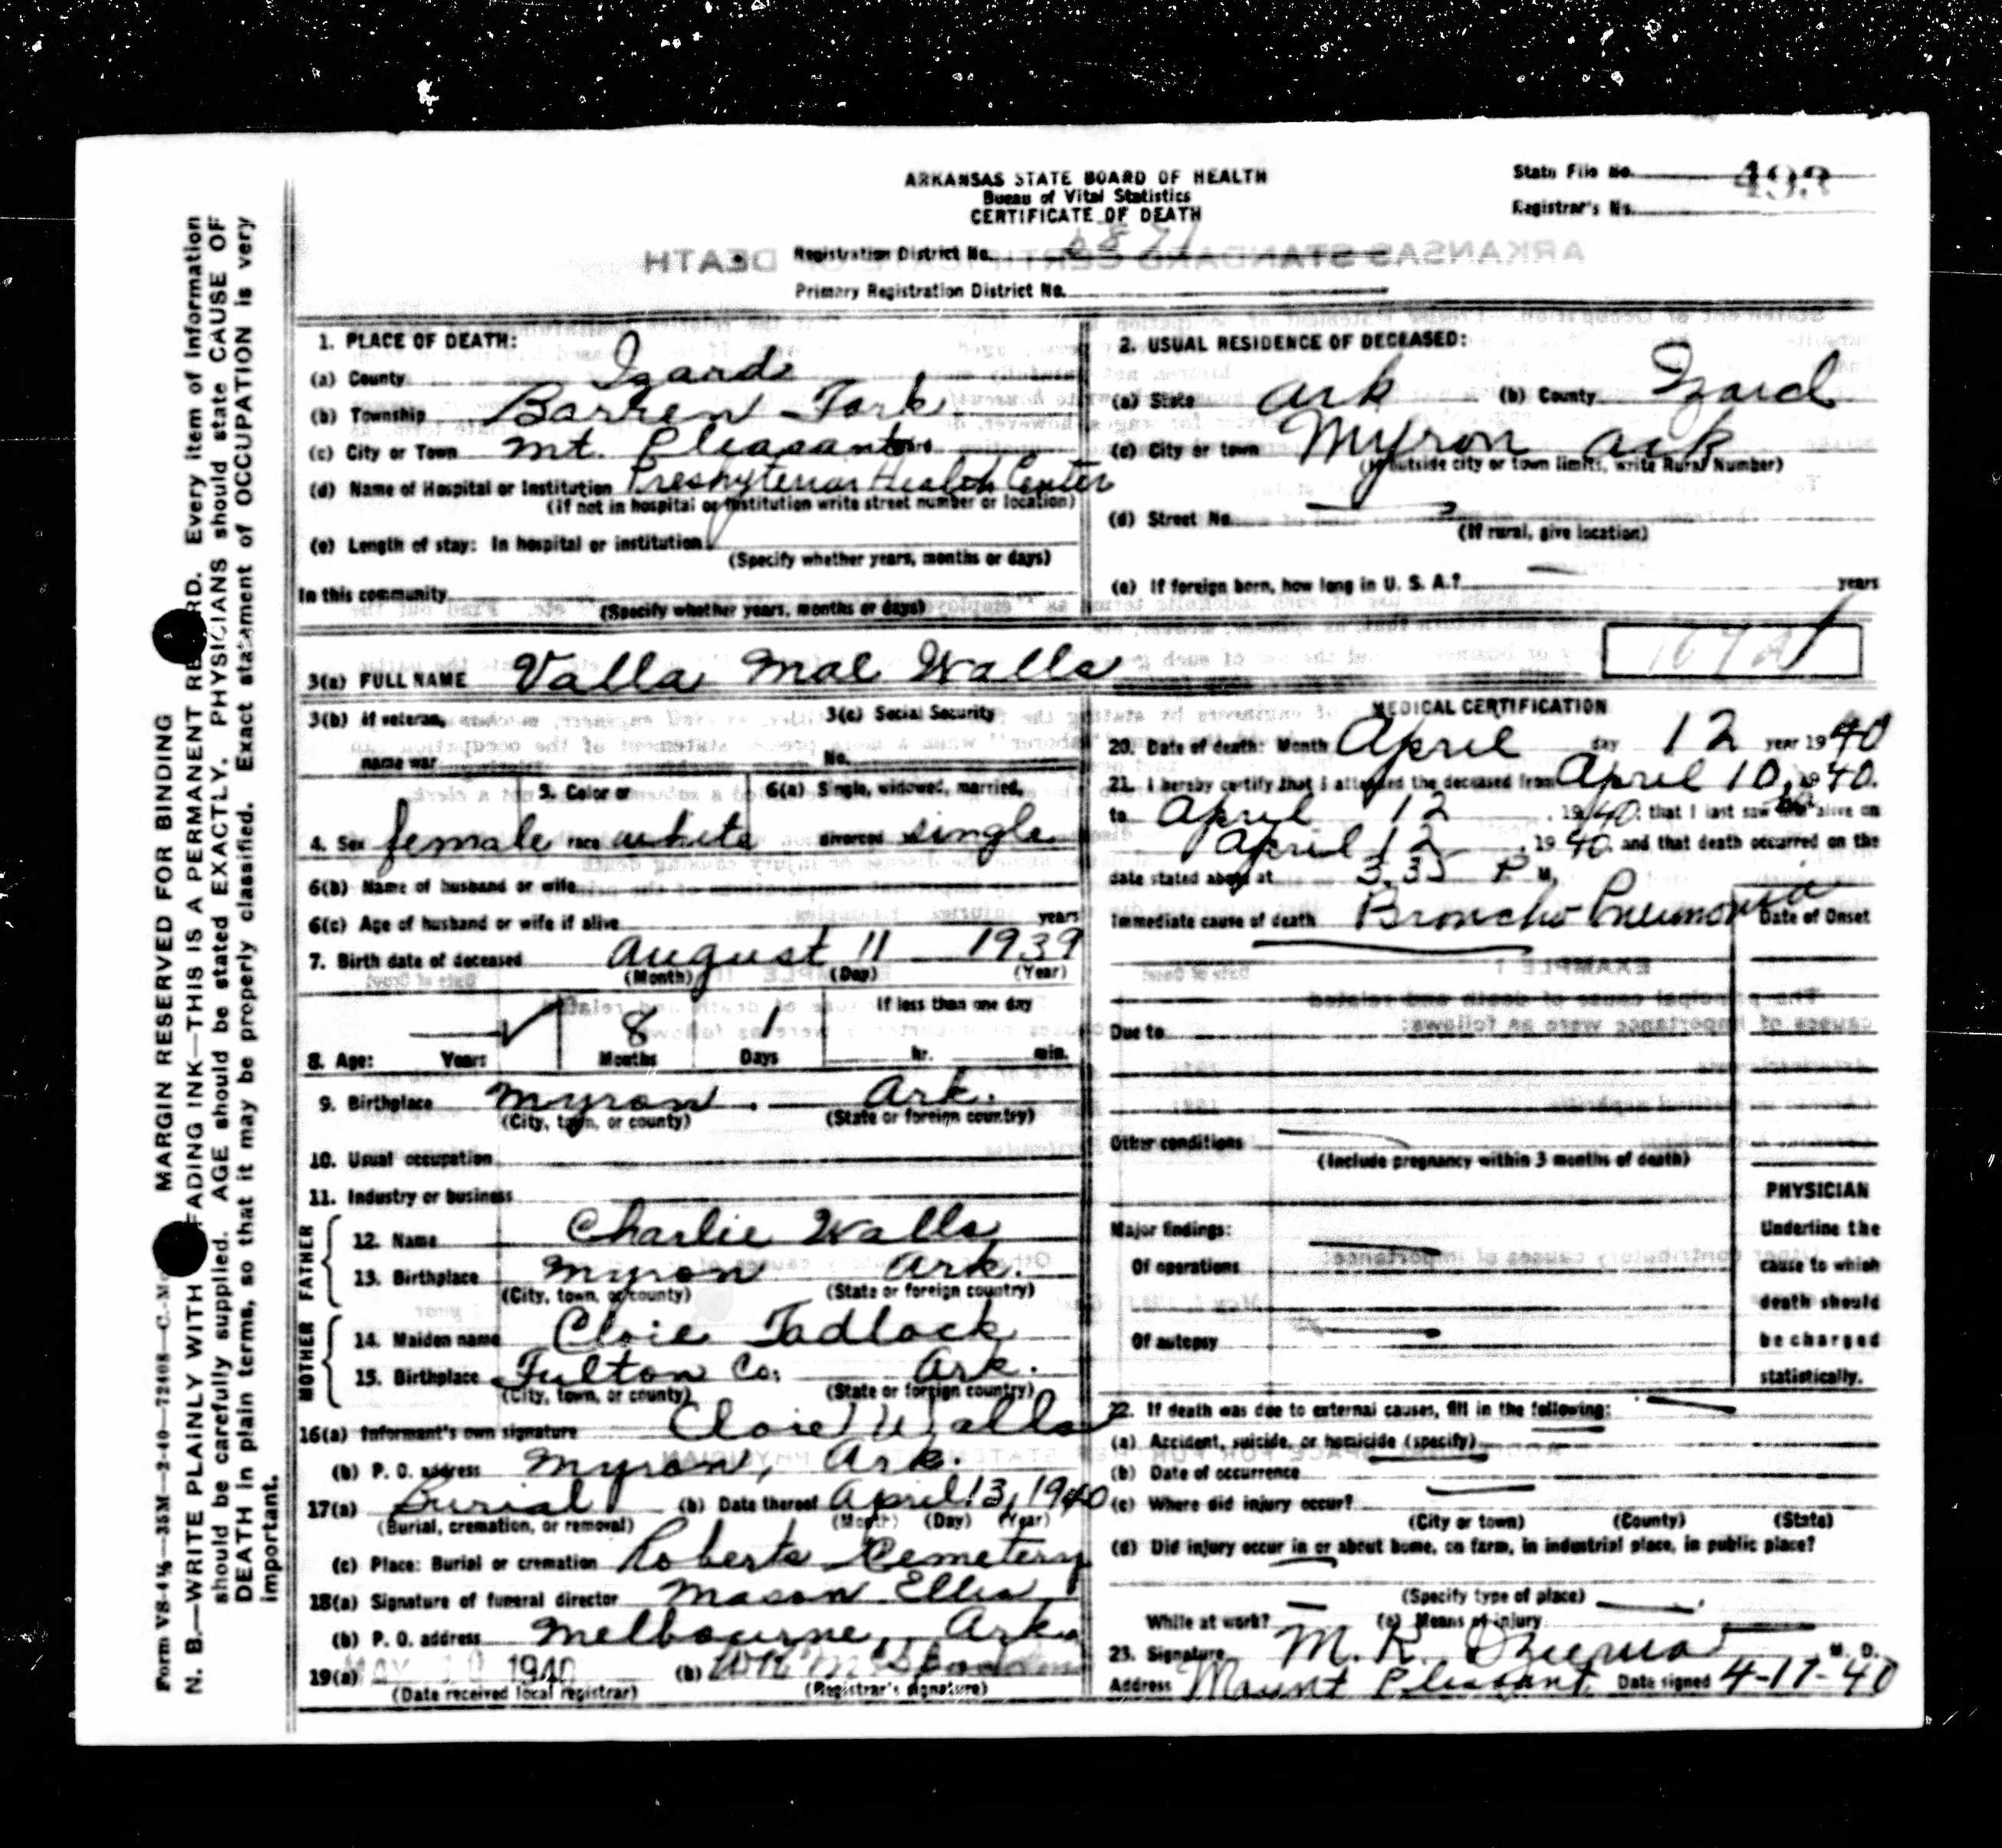 ARKANSAS STATE BOARD OF HEALTH
Bueau of Vital Statistics
CERTIFICATE OF DEATH
State File No. 493
Registrar's No.
Registration District No.
Primary Registration District No.
MARGIN RESERVED FOR BINDING
N. B.—WRITE PLAINLY WITH FADING INK—THIS IS A PERMANENT RECORD. Every item of information
should be carefully supplied. AGE should be stated EXACTLY. PHYSICIANS should state CAUSE OF
DEATH in plain terms, so that it may be properly classified. Exact statement of OCCUPATION is very
important.
1. PLACE OF DEATH:
(a) County Izard
(b) Township Barren Fork
(c) City or Town Mt. Pleasant
(d) Name of Hospital or Institution Presbyterian Health Center
(If not in hospital or institution write street number or location)
(e) Length of stay: In hospital or institution
(Specify whether years, months or days)
In this community
(Specify whether years, months or days)
2. USUAL RESIDENCE OF DECEASED:
(a) State Ark (b) County Izard
(c) City or town Myron Ark
(If outside city or town limits, write Rural Number)
(d) Street No.
(If rural, give location)
(e) If foreign born, how long in U. S. A.? years
3(a) FULL NAME Valla Mae Walls
3(b) If veteran, name war
3(c) Social Security No.
4. Sex female
5. Color or race white
6(a) Single, widowed, married, divorced single
6(b) Name of husband or wife
6(c) Age of husband or wife if alive years
7. Birth date of deceased August 11 1939
(Month) (Day) (Year)
8. Age: Years 8 Months 1 Days If less than one day hr. min.
9. Birthplace Myron. Ark.
(City, town, or county) (State or foreign country)
10. Usual occupation
11. Industry or business
FATHER
12. Name Charlie Walls
13. Birthplace Myron Ark.
(City, town, or county) (State or foreign country)
MOTHER
14. Maiden name Cloie Tadlock
15. Birthplace Fulton Co. Ark.
(City, town, or county) (State or foreign country)
16(a) Informant's own signature Cloie Walls
(b) P. O. address Myron, Ark.
17(a) Burial (b) Date thereof April 13, 1940
(Burial, cremation, or removal) (Month) (Day) (Year)
(c) Place: Burial or cremation Roberts Cemetery
18(a) Signature of funeral director Mason Ellis
(b) P. O. address Melbourne, Ark
19(a) MAY 10 1940 (b)
(Date received local registrar) (Registrar's signature)
MEDICAL CERTIFICATION
20. Date of death: Month April day 12 year 1940
21. I hereby certify that I attended the deceased from April 10, 1940.
to April 12, 1940; that I last saw her alive on
April 12, 1940 and that death occurred on the
date stated above at 3.35 P M.
Immediate cause of death Broncho Pneumonia
Date of Onset
Due to
Other conditions
(Include pregnancy within 3 months of death)
Major findings:
Of operations
Of autopsy
PHYSICIAN
Underline the
cause to which
death should
be charged
statistically.
22. If death was due to external causes, fill in the following:
(a) Accident, suicide, or homicide (specify)
(b) Date of occurrence
(c) Where did injury occur?
(City or town) (County) (State)
(d) Did injury occur in or about home, on farm, in industrial place, in public place?
(Specify type of place)
While at work? (e) Means of injury
23. Signature M. K. M. D.
Address Mount Pleasant Date signed 4-17-40